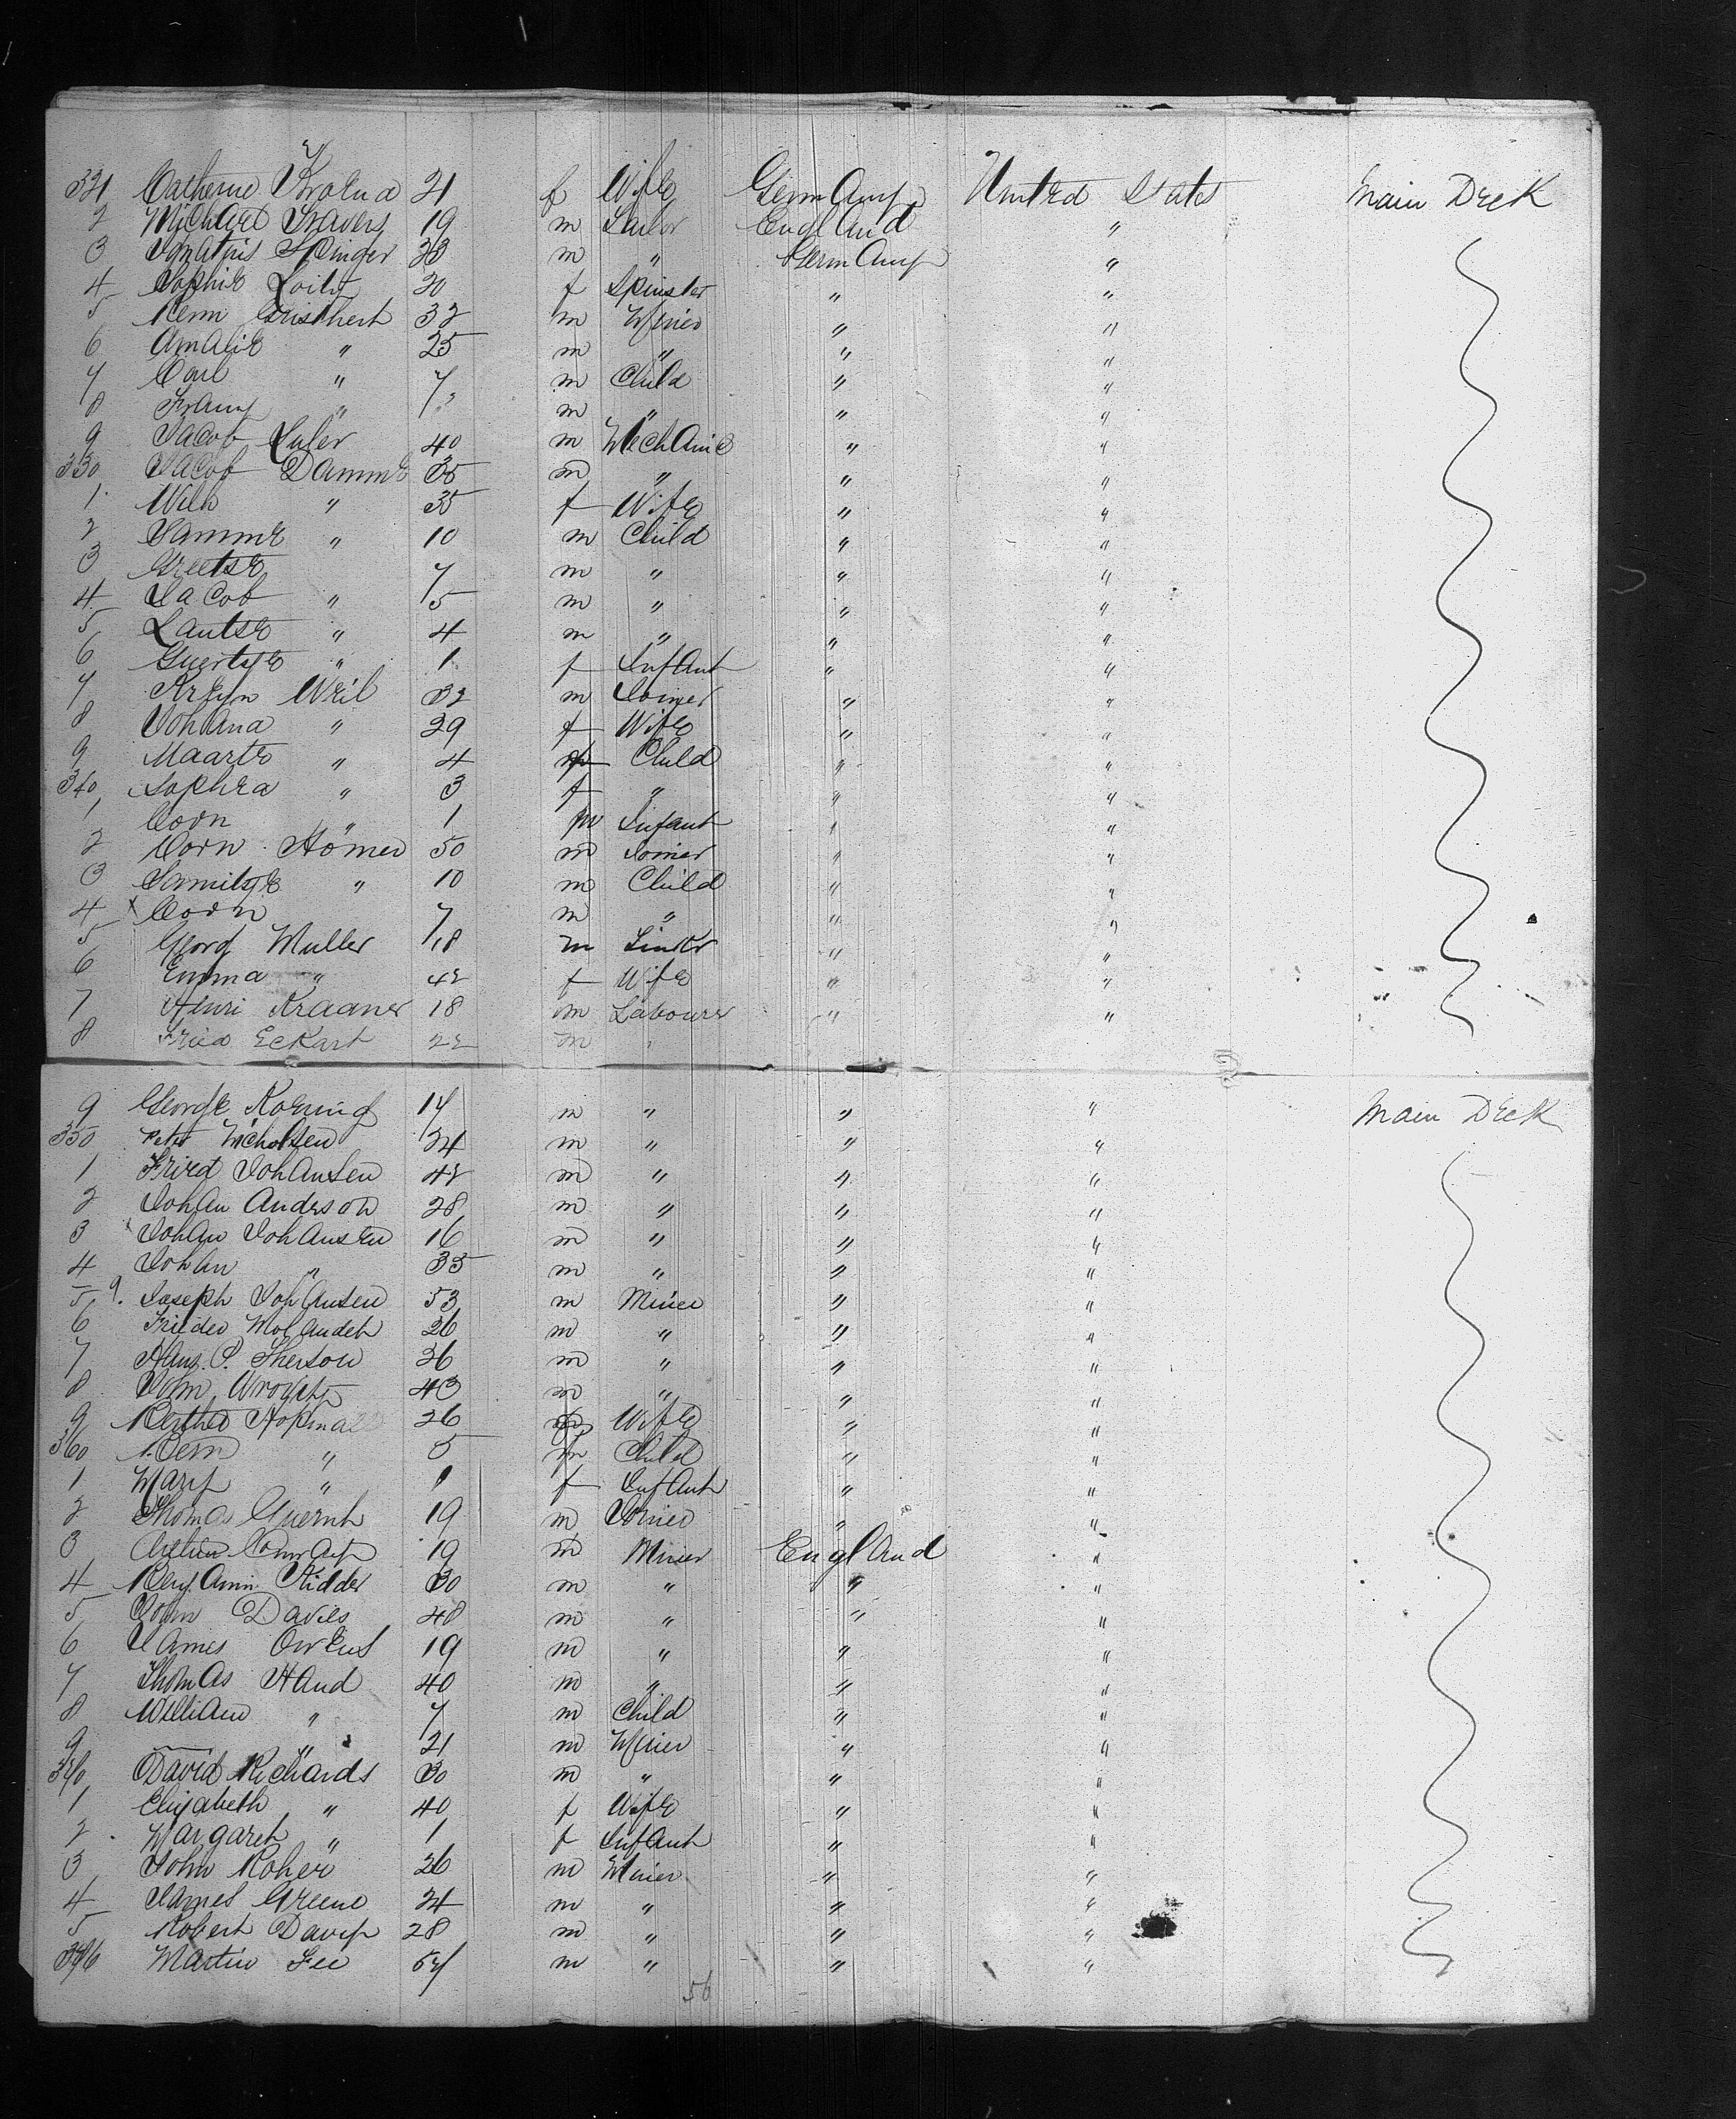 321 Catherine 21 f Wife Germany United States Main Deck
2 Michael Travers 19 m Sailor England "
3 Ignatius Springer 33 m " Germany "
4 Sophie 20 f Spinster " "
5 32 m Miner " "
6 Amalie " 25 m " " "
7 Carl " 7 m Child " "
8 Franz " 7 m " " "
9 Jacob Luler 40 m Mechanic " "
330 Jacob Damme 35 m " " "
1 Wilh " 35 f Wife " "
2 Samme " 10 m Child " "
3 Greetse 7 m " " "
4 Jacob " 5 m " " "
5 Lautse " 4 m " " "
6 Guertye " 1 f Infant " "
7 Weil 32 m Joiner " "
8 Johana " 29 f Wife " "
9 Maarte " 4 Child " "
340 Sophia " 3 f " " "
1 Corn " 1 m Infant " "
2 Corn Homer 50 m Joiner " "
3 " 10 m Child " "
4 x Corn 7 m " " "
5 Georg Muller 18 m " "
6 Emma " 42 f Wife " "
7 Henri Kraaner 18 m Labourer " "
8 Fried Eckart 22 m "
9 George Koening 14 m " " " Main Deck
350 Peter Nicholsen 24 m " " "
1 Fried Johansen 42 m " " "
2 Johan Anderson 28 m " " "
3 Johan Johansen 16 m " " "
4 Johan " 35 m " " "
5 Joseph Johansen 53 m Miner " "
6 26 m " " "
7 Hans P. 36 m " " "
8 John 43 m " " "
9 Bertha Hopman 26 Wife " "
360 Bern " 5 m Child " "
1 Mary " 1 f Infant " "
2 Thomas 19 m Joiner " "
3 19 m Miner England "
4 Benjamin Kidder 30 m " " "
5 John Davies 48 m " " "
6 James Owens 19 m " " "
7 Thomas Hand 40 m " " "
8 William " 7 m Child " "
9 — " 21 m Miner " "
370 David Richards 30 m " " "
1 Elizabeth " 40 f Wife " "
2 Margaret " 1 f Infant " "
3 John Roher 26 m Miner " "
4 James Greene 24 m " " "
5 Robert Davey 28 m " " "
376 Martin Lee 54 m " " "
56